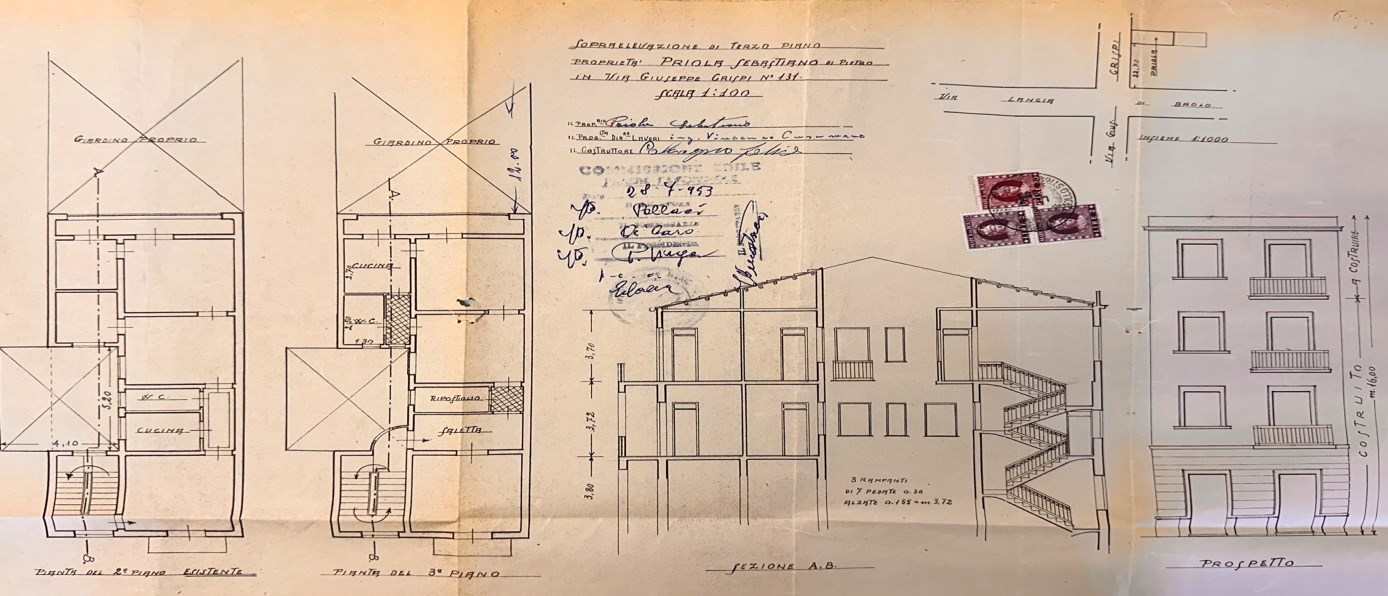 SOPRAELEVAZIONE DI TERZO PIANO
PROPRIETA' PRIOLA SEBASTIANO DI PIETRO
IN VIA GIUSEPPE CRISPI N° 131.
SCALA 1:100
IL PROP.RIO Priola Sebastiano
IL PROG. DIR. LAVORI ing. Vincenzo
IL COSTRUTTORE
COMMISSIONE EDILE
28 7-953
IL PRESIDENTE
GIARDINO PROPRIO
A
W C.
CUCINA
5,20
4,10
B
PIANTA DEL 2° PIANO ESISTENTE
GIARDINO PROPRIO
12.00
A
CUCINA
W C.
1,30
RIPOSTIGLIO
SALETTA
B
PIANTA DEL 3° PIANO
3,70
3,72
3,80
3 RAMPANTI
DI 7 PEDATE 0.30
ALZATE 0.155 = m 3,72
SEZIONE A.B.
CRISPI
PRIOLA
VIA LANCIA DI BROLO
VIA GIUS.
INSIEME 1:1000
A COSTRUIRE
COSTRUITO
m. 16,00
PROSPETTO